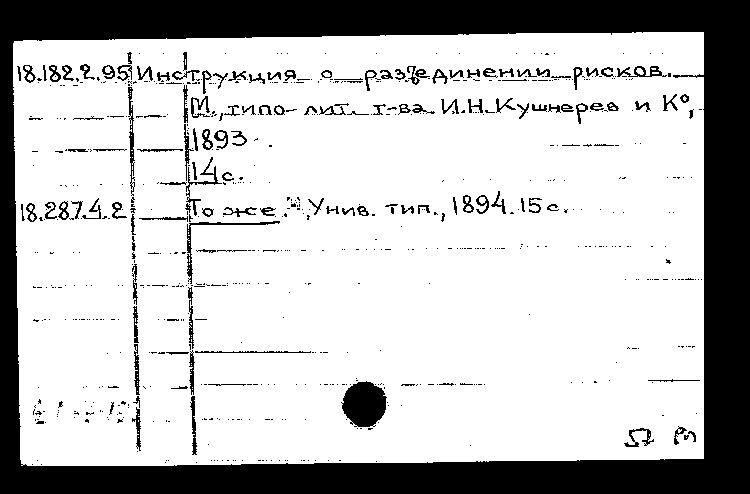 18.182.2.95 Инструкция о разъединении рисков.
М., типо-лит. т-ва И.Н.Кушнерев и К°,
1893.
14с.
18.287.4.2 То же. М., Унив. тип., 1894. 15с.
57